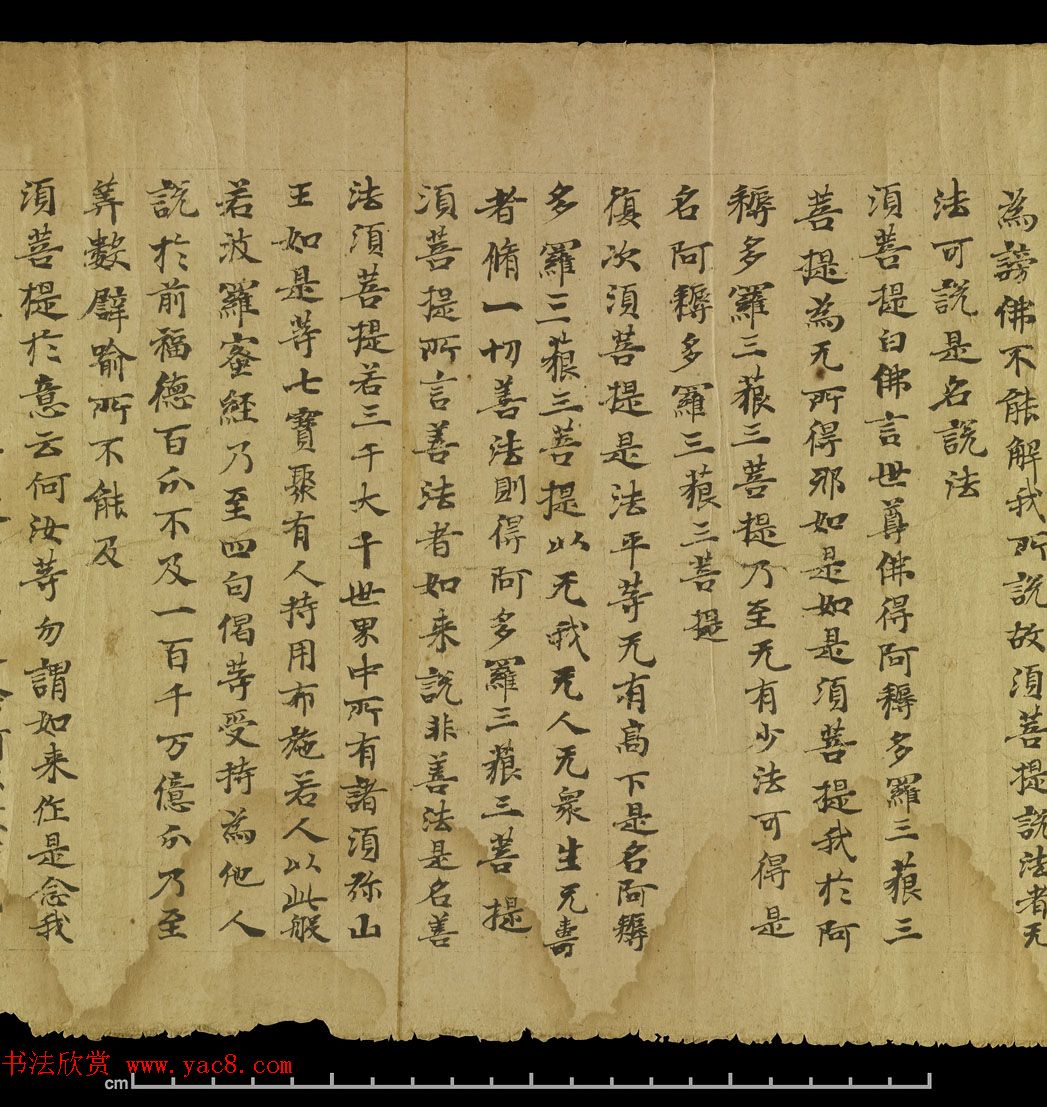 為謗佛不能解我所説故須菩提説法者无
法可説是名説法
須菩提白佛言世尊佛得阿耨多羅三藐三
菩提為无所得耶如是如是須菩提我於阿
耨多羅三藐三菩提乃至无有少法可得是
名阿耨多羅三藐三菩提
復次須菩提是法平等无有高下是名阿耨
多羅三藐三菩提以无我无人无衆生无壽
者脩一切善法則得阿多羅三藐三菩提
須菩提所言善法者如来説非善法是名善
法須菩提若三千大千世界中所有諸須弥山
王如是等七寶聚有人持用布施若人以此般
若波羅蜜經乃至四句偈等受持為他人
説於前福德百分不及一百千万億分乃至
筭數譬喻所不能及
須菩提於意云何汝等勿謂如来作是念我
书法欣赏 www.yac8.com
cm